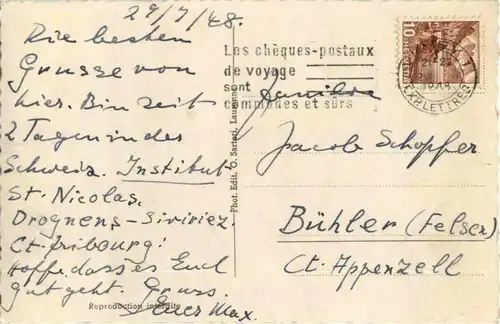 29/7/48.
Die besten
Grüsse von
hier. Bin seit
2 Tagen in des
Schweiz. Institut
St. Nicolas,
Drognens-Siviriez.
Ct. fribourg!
Hoffe dass es Euch
gut geht. Gruss.
Euer Max.
Reproduction interdite
Phot. Edit. O. Sartori, Lausanne
Les chèques-postaux
de voyage
sont
commodes et sûrs
10
EXPR.LETTRES
Familie
Jacob Schopfer
Bühler (Felsen)
Ct. Appenzell